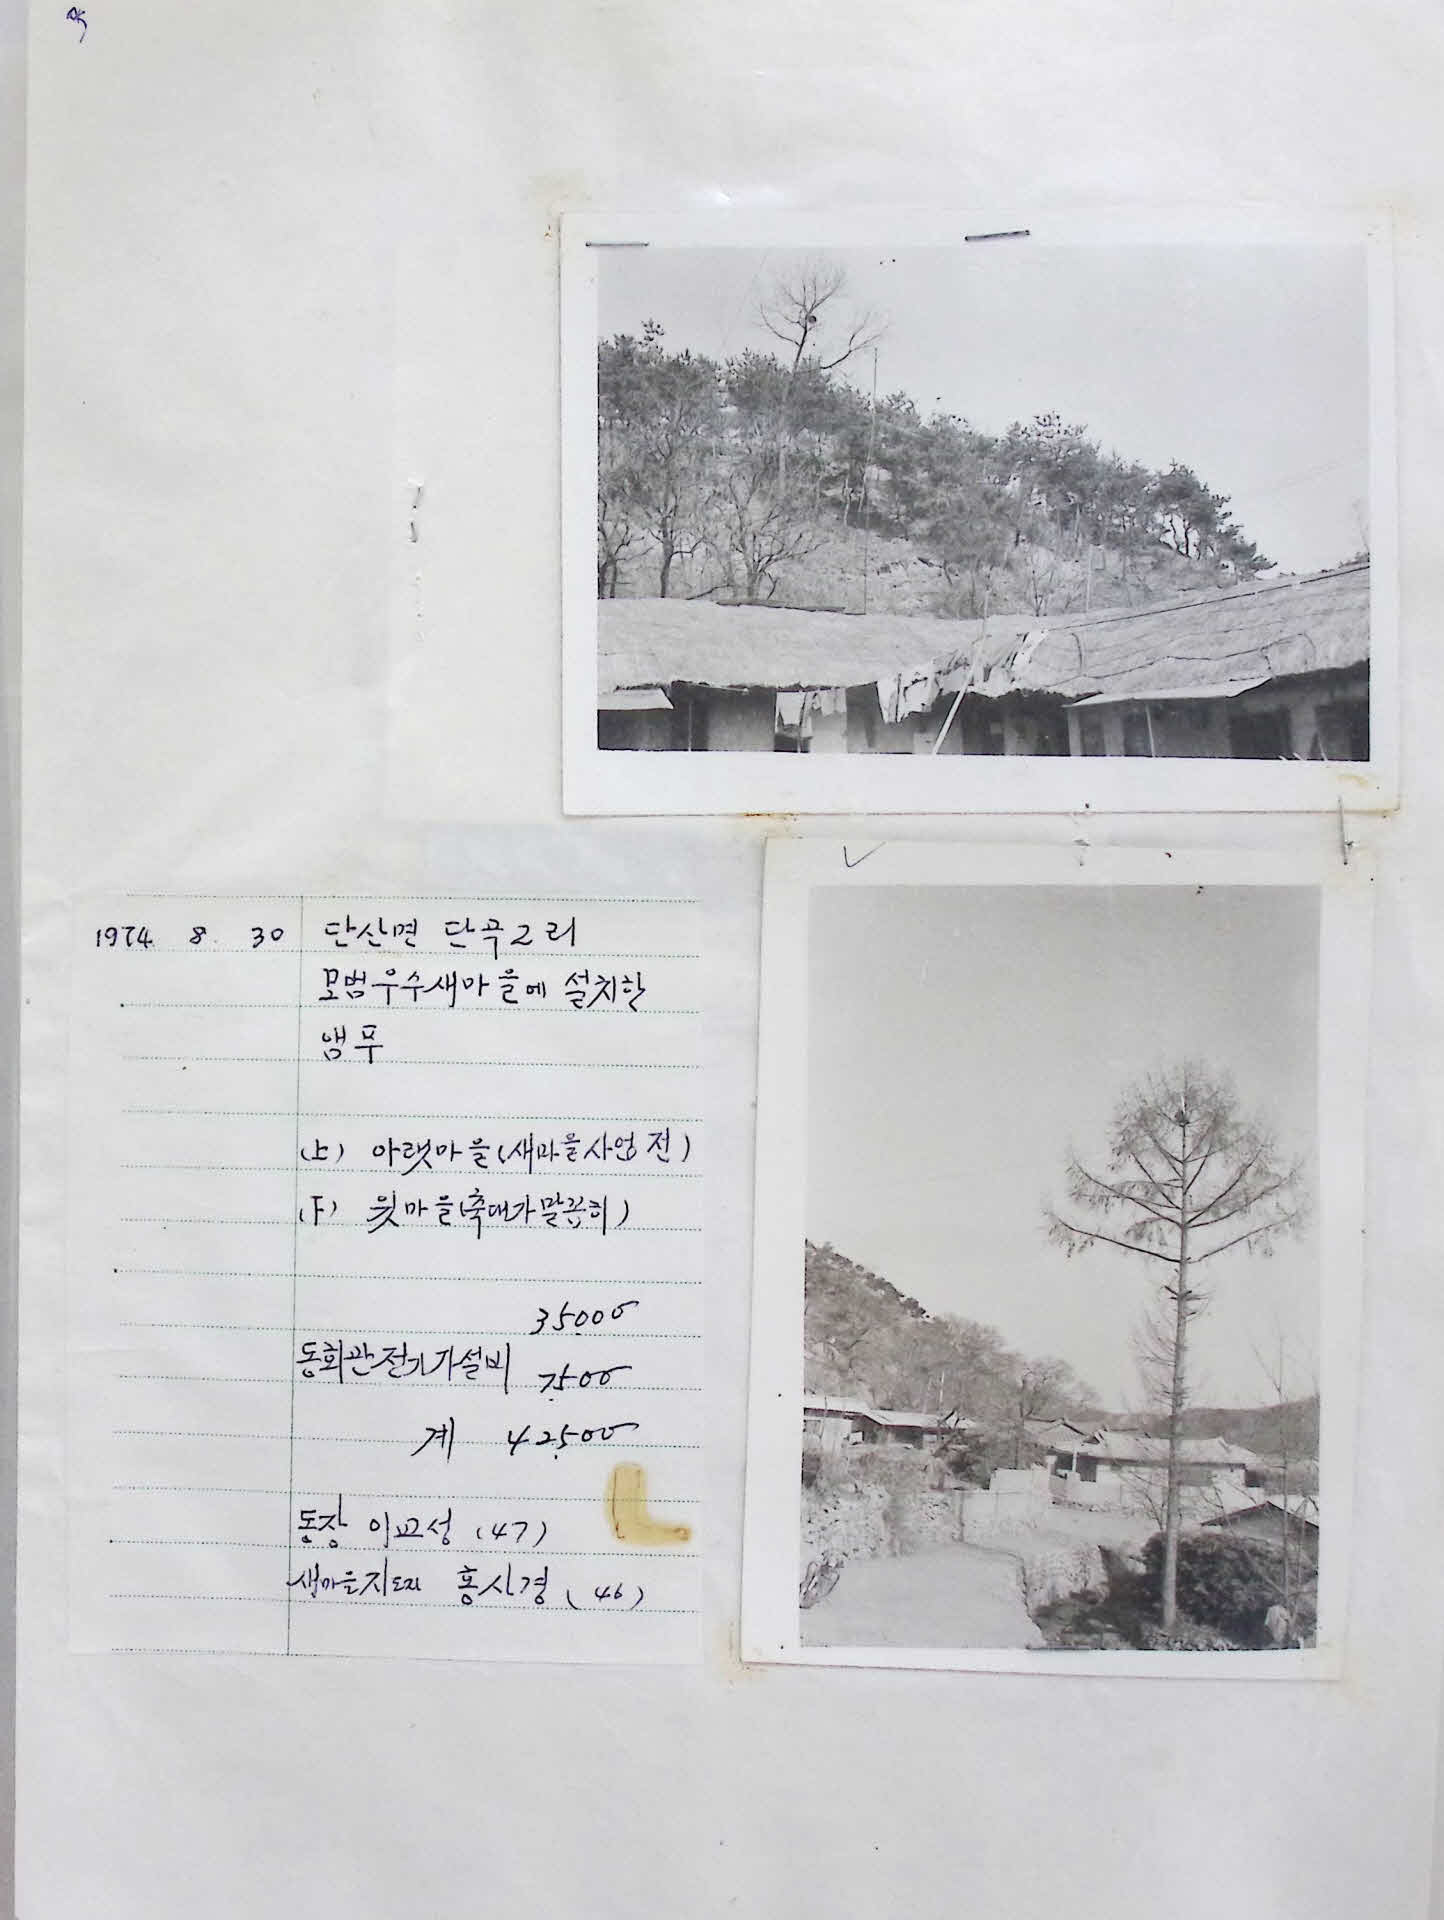 1974. 8. 30 단산면 단곡2리
모범우수새마을에 설치한
앰푸
(上) 아랫마을(새마을사업 전)
(下) 윗마을(축대가 말끔히)
35000
동회관전기가설비 7500
계 42500
동장 이교성 (47)
새마을지도자 홍사경 (46)